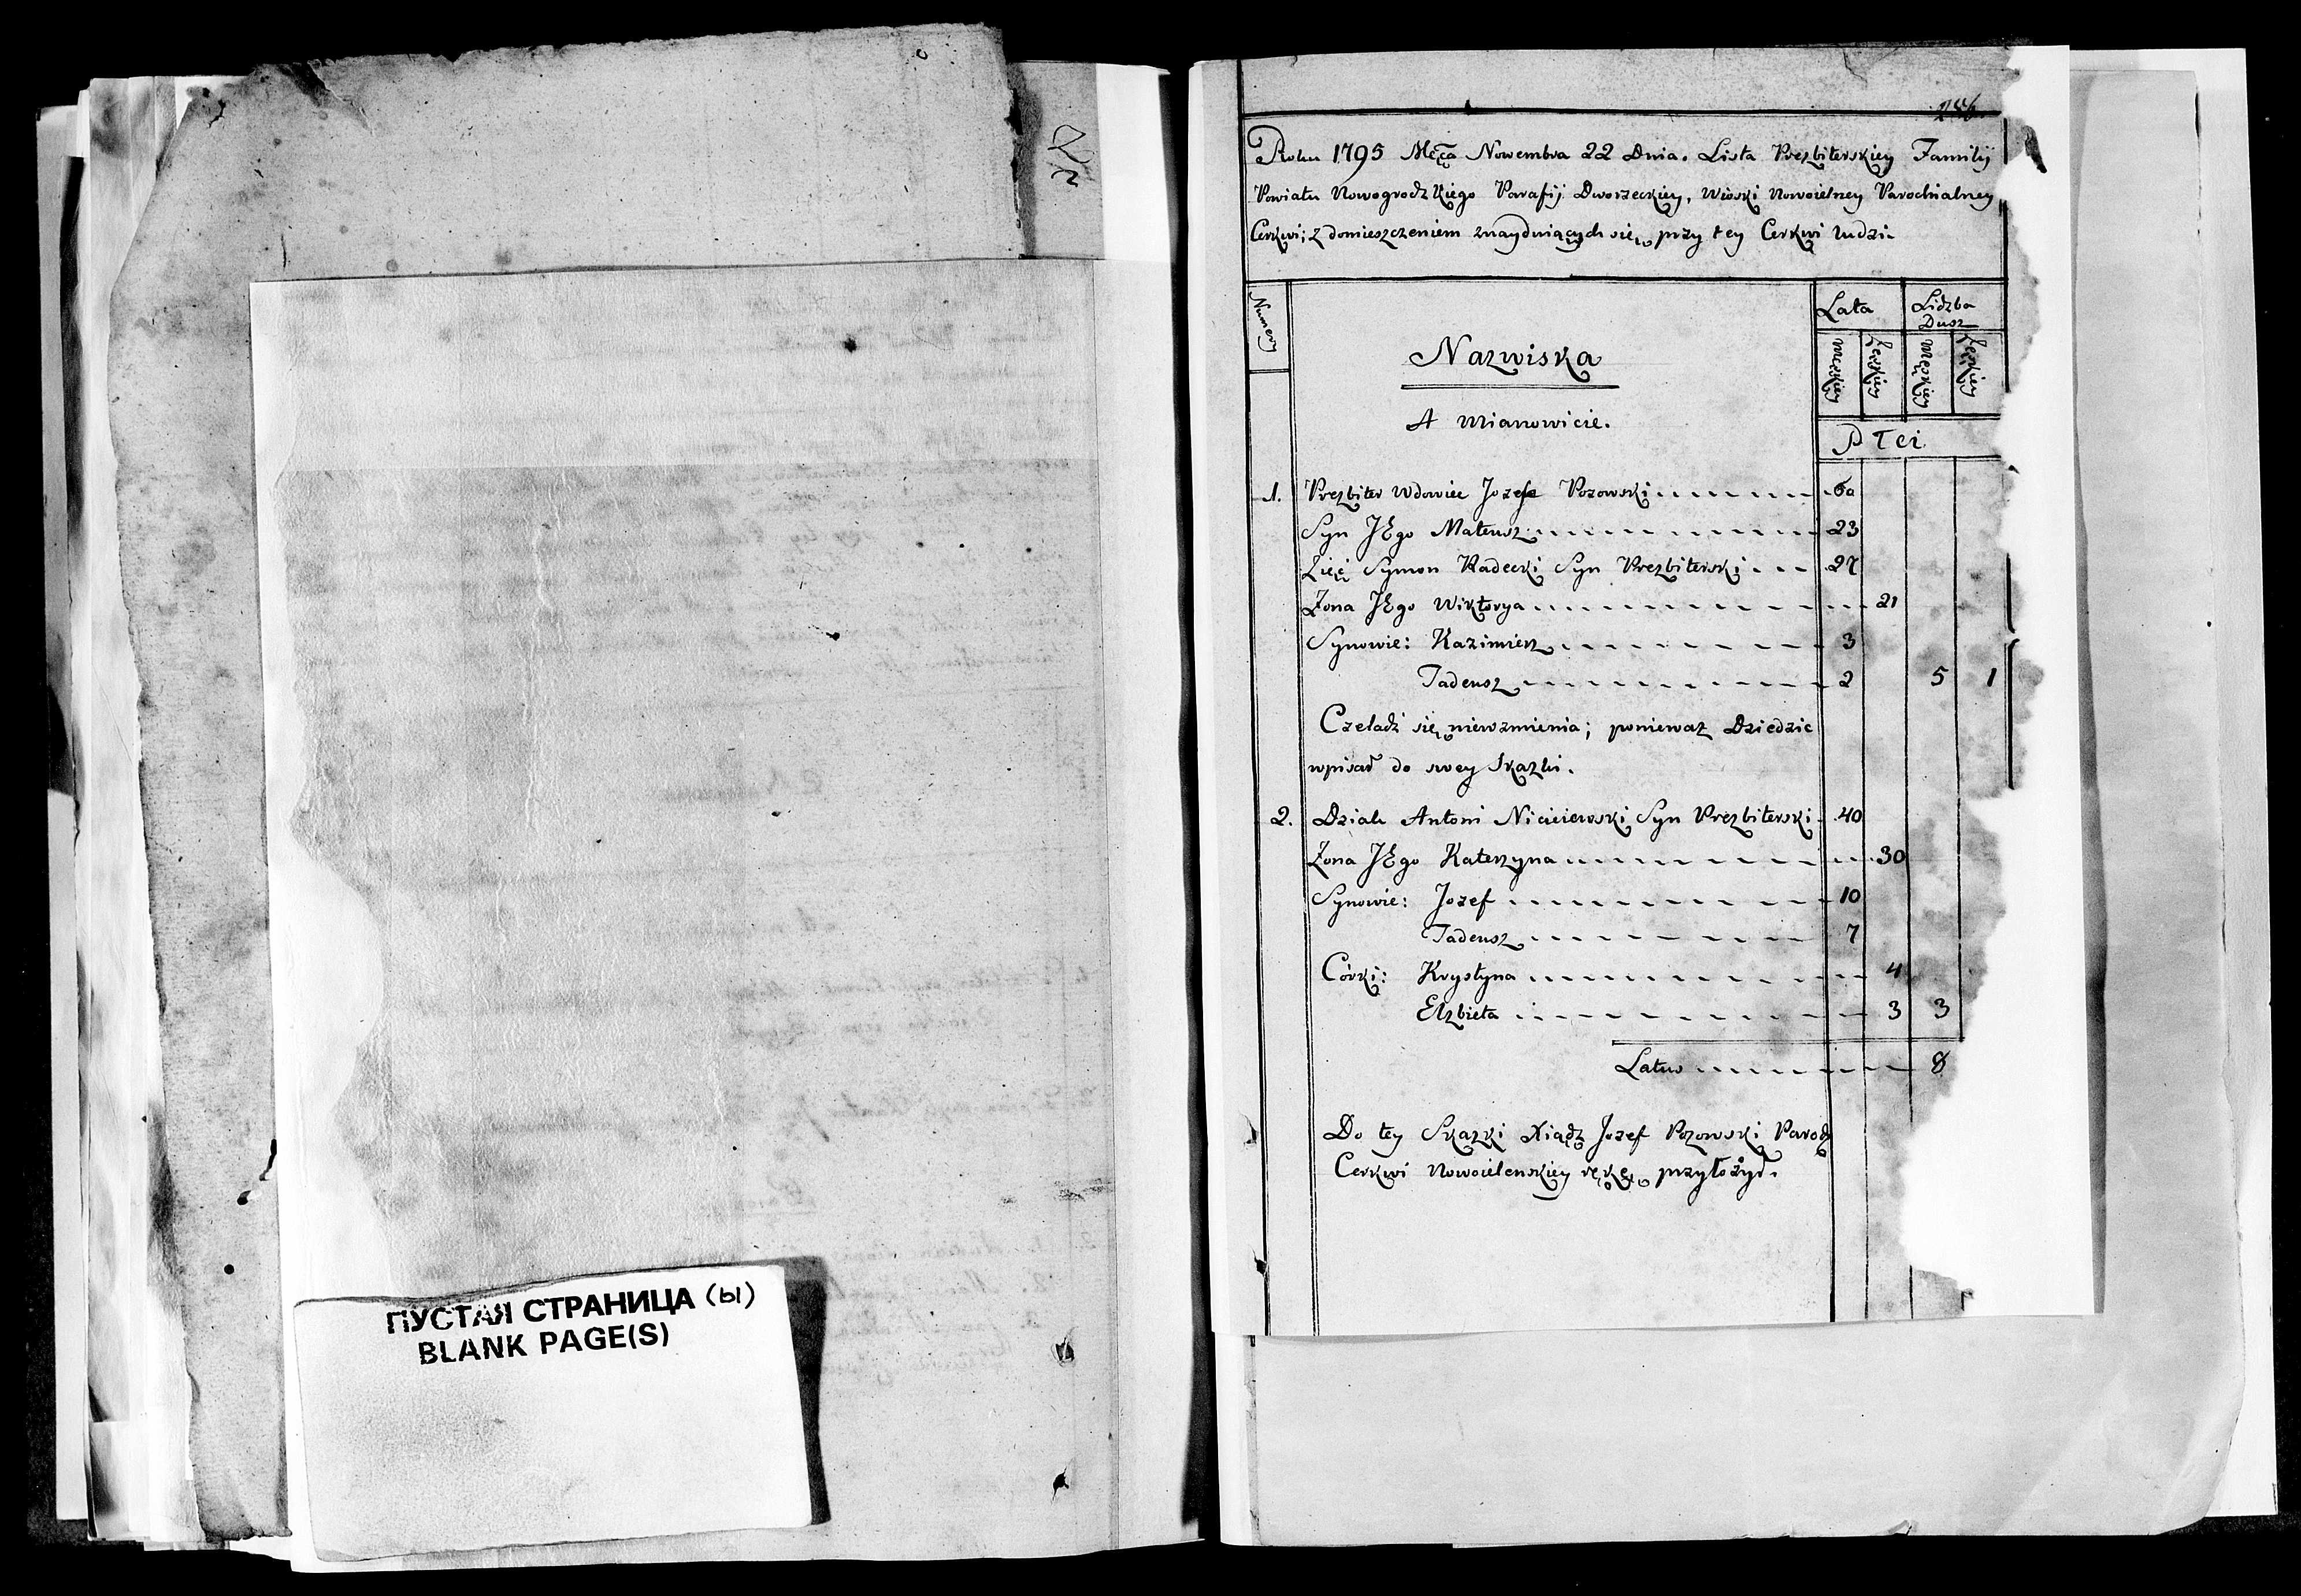 ПУСТАЯ СТРАНИЦА (Ы)
BLANK PAGE(S)
Roku 1795 Mca Nowembra 22 Dnia. Lista Prezbiterskiey Familij
Powiatu Nowogrodzkiego Parafij Dworzeckiey, Wioski Nowoielney Parochialney
Cerkwi; z domieszczeniem znayduiących się przy tey Cerkwi ludzi.
Numery
Nazwiska
A mianowicie.
Lata
Lidzba Dusz
męskiey
żęskiey
męskiey
żęskiey
Płci
1. Prezbiter Wdowiec Jozef Pozowski 60
Syn JEgo Mateusz 23
Zięć Symon Radecki Syn Prezbiterski 27
Żona JEgo Wiktorya 21
Synowie: Kazimierz 3
Tadeusz 2 5 1
Czeladź się niewzmienia; poniewaz Dziedzic
wpisał do swey Skazki.
2. Dziak Antoni Syn Prezbiterski 40
Żona JEgo Katerzyna 30
Synowie: Jozef 10
Tadeusz 7
Córki: Krystyna 4
Elzbieta 3 3
Latus 8
Do tey Skazki Xiądz Jozef Pozowski Paroch
Cerkwi Nowoielenskiey rękę przyłożył.